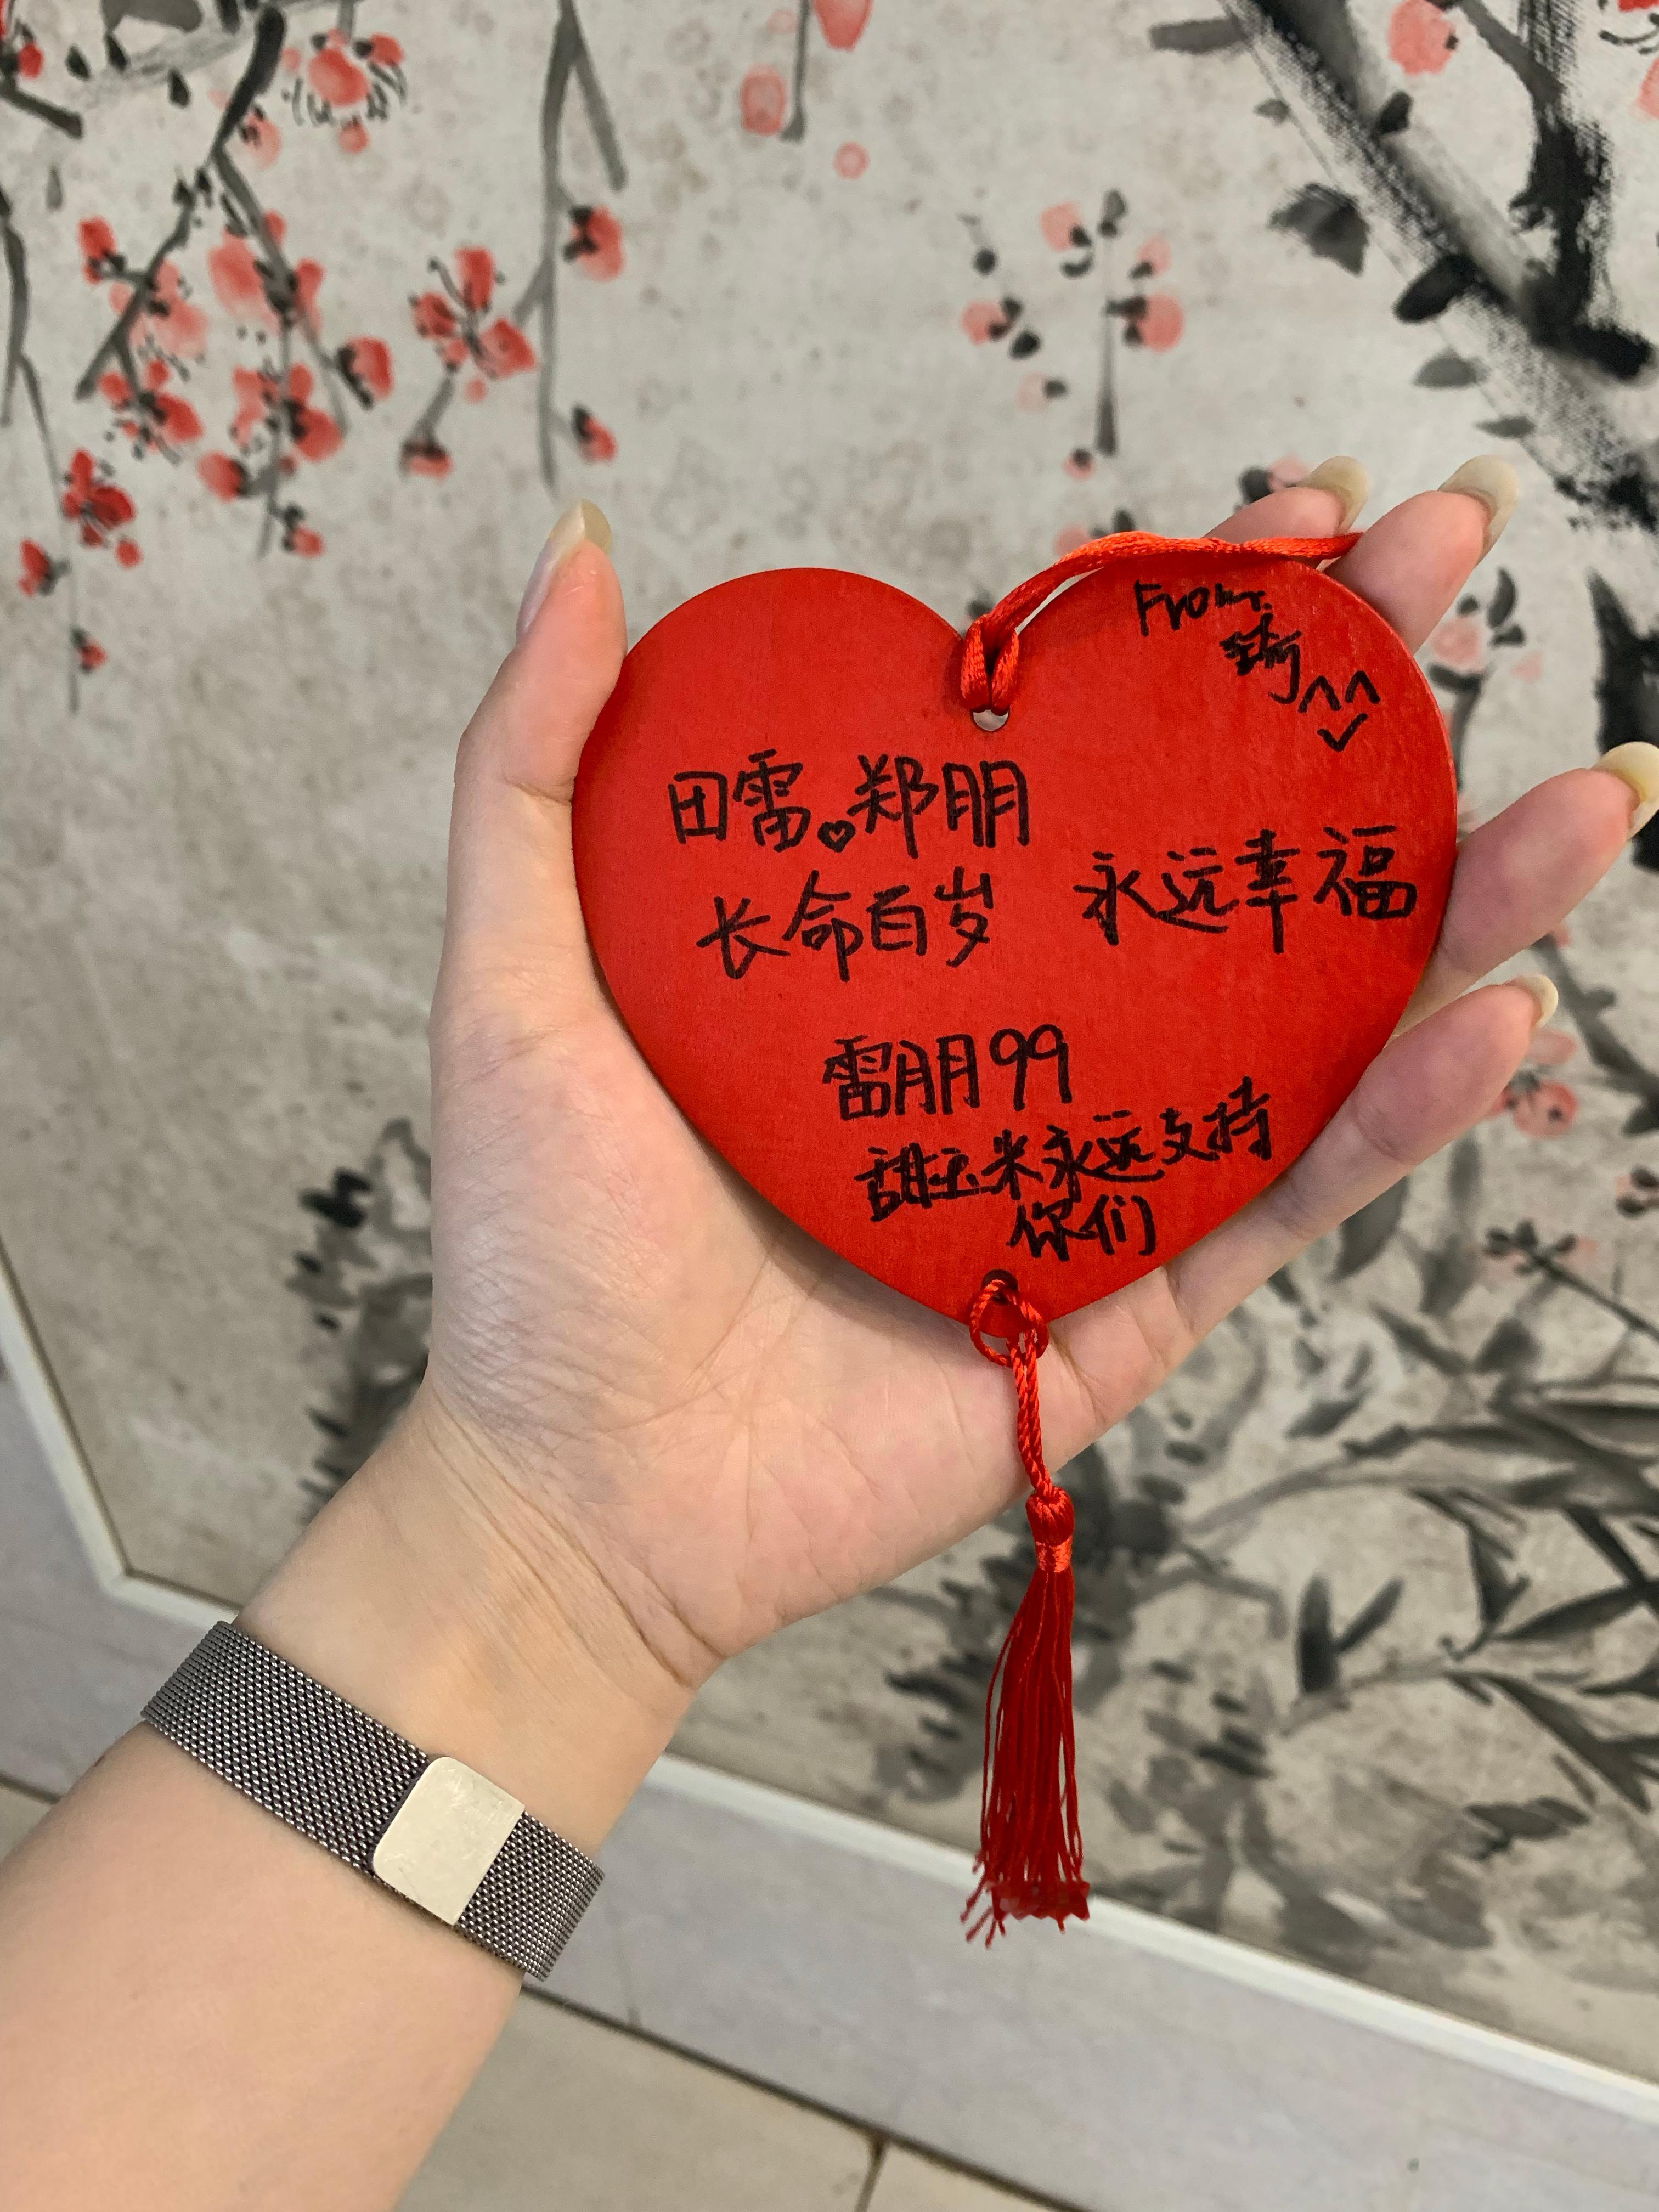 From.
琦^^
田雷♡郑朋
长命百岁 永远幸福
雷朋99
甜玉米永远支持
你们